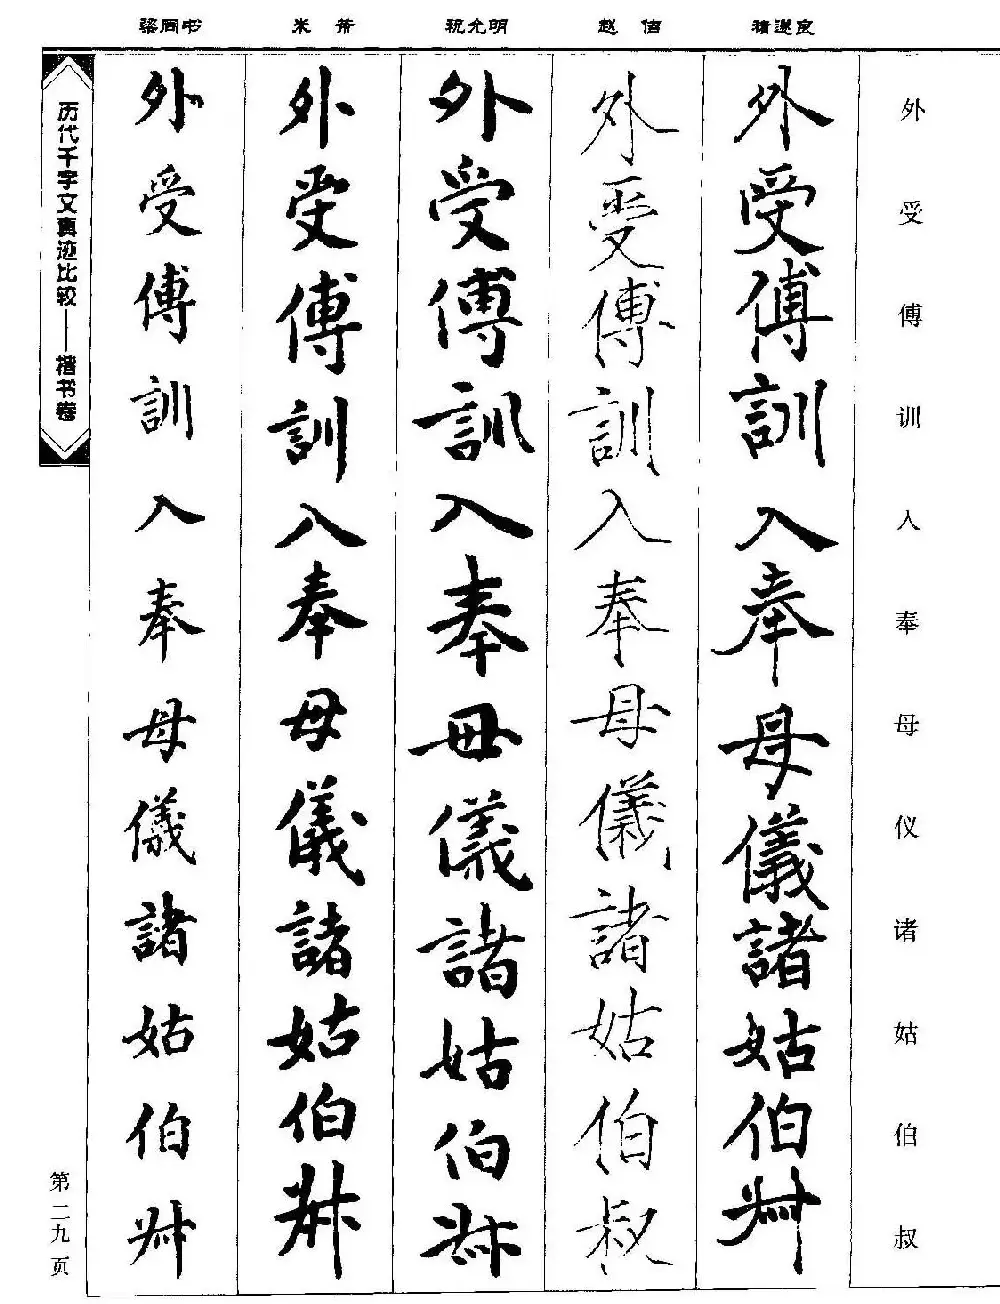 梁同书 米芾 祝允明 赵佶 褚遂良
外受傅训入奉母仪诸姑伯叔
外受傅訓入奉母儀諸姑伯叔
外受傅訓入奉母儀諸姑伯叔
外受傅訓入奉母儀諸姑伯叔
外受傅訓入奉母儀諸姑伯叔
外受傅訓入奉母儀諸姑伯叔
历代千字文真迹比较——楷书卷
第二九页